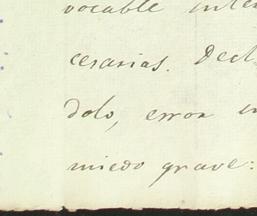 vocable inten
cesarias. Decl
dolo, error in
miedo grave: